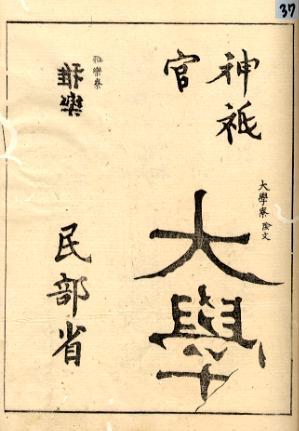 37
神祇
官
大學寮 陰文
大學
雅樂寮
雅樂
民部省